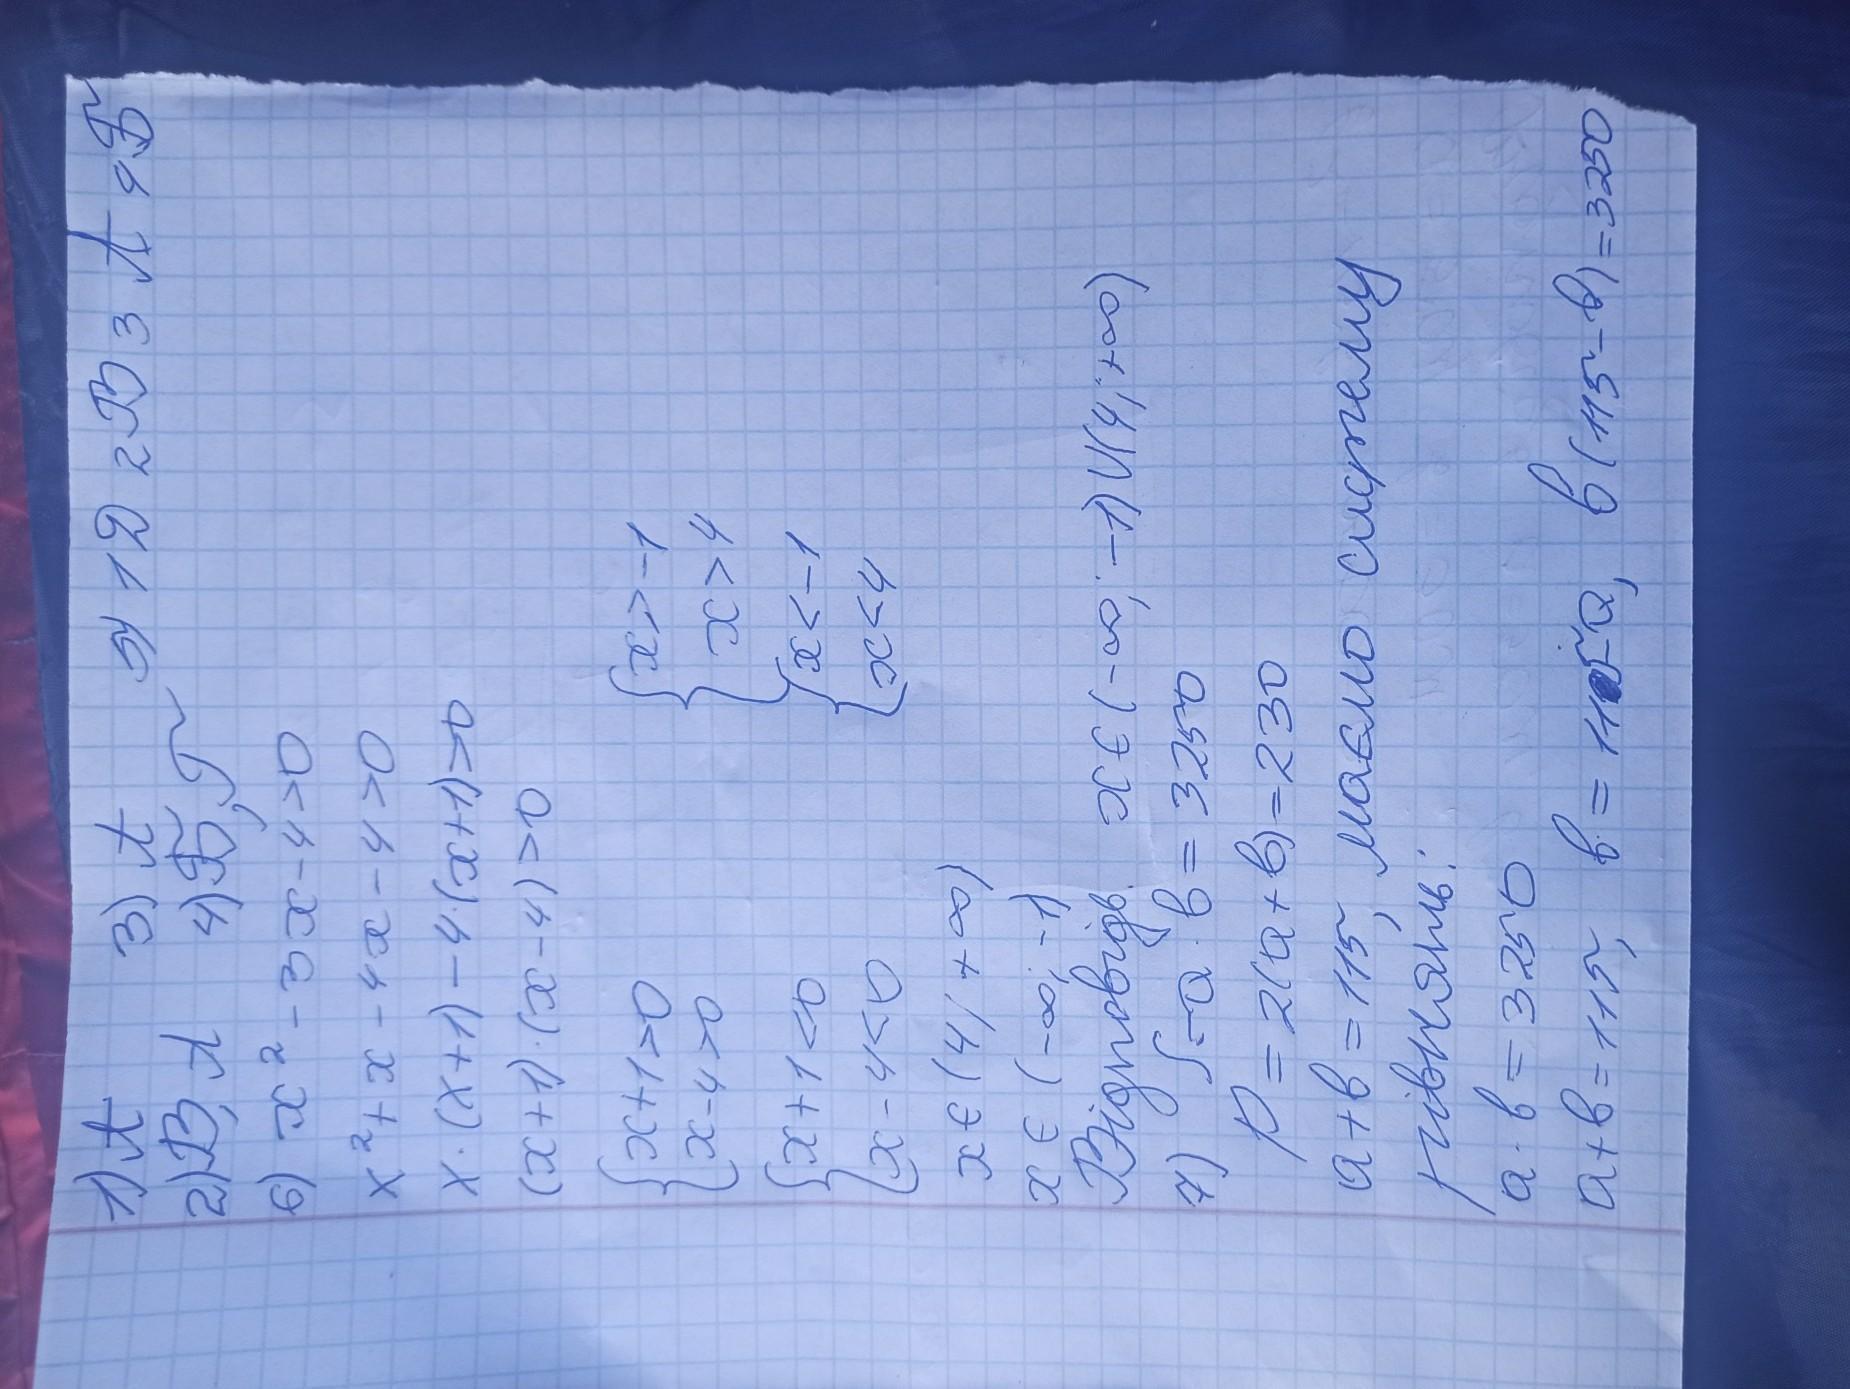 1) А 3) А 5) 1 Д 2 В 3 А 4 Б
2) В, А 4) Б, Г
6) x² - 3x - 4 > 0
x² + x - 4x - 4 > 0
x · (x + 1) - 4 · (x + 1) > 0
(x + 1) · (x - 4) > 0
{ x + 1 > 0 { x > -1
{ x - 4 > 0 { x > 4
{ x + 1 < 0 { x < -1
{ x - 4 < 0 { x < 4
x ∈ (4; + ∞)
x ∈ (-∞; -1)
Відповідь. x ∈ (-∞; -1) U (4; +∞)
7) S = a · b = 3250
P = 2(a + b) = 230
a + b = 115, маємо систему
рівнянь:
a · b = 3250
a + b = 115, b = 115 - a, b (115 - b) = 3250